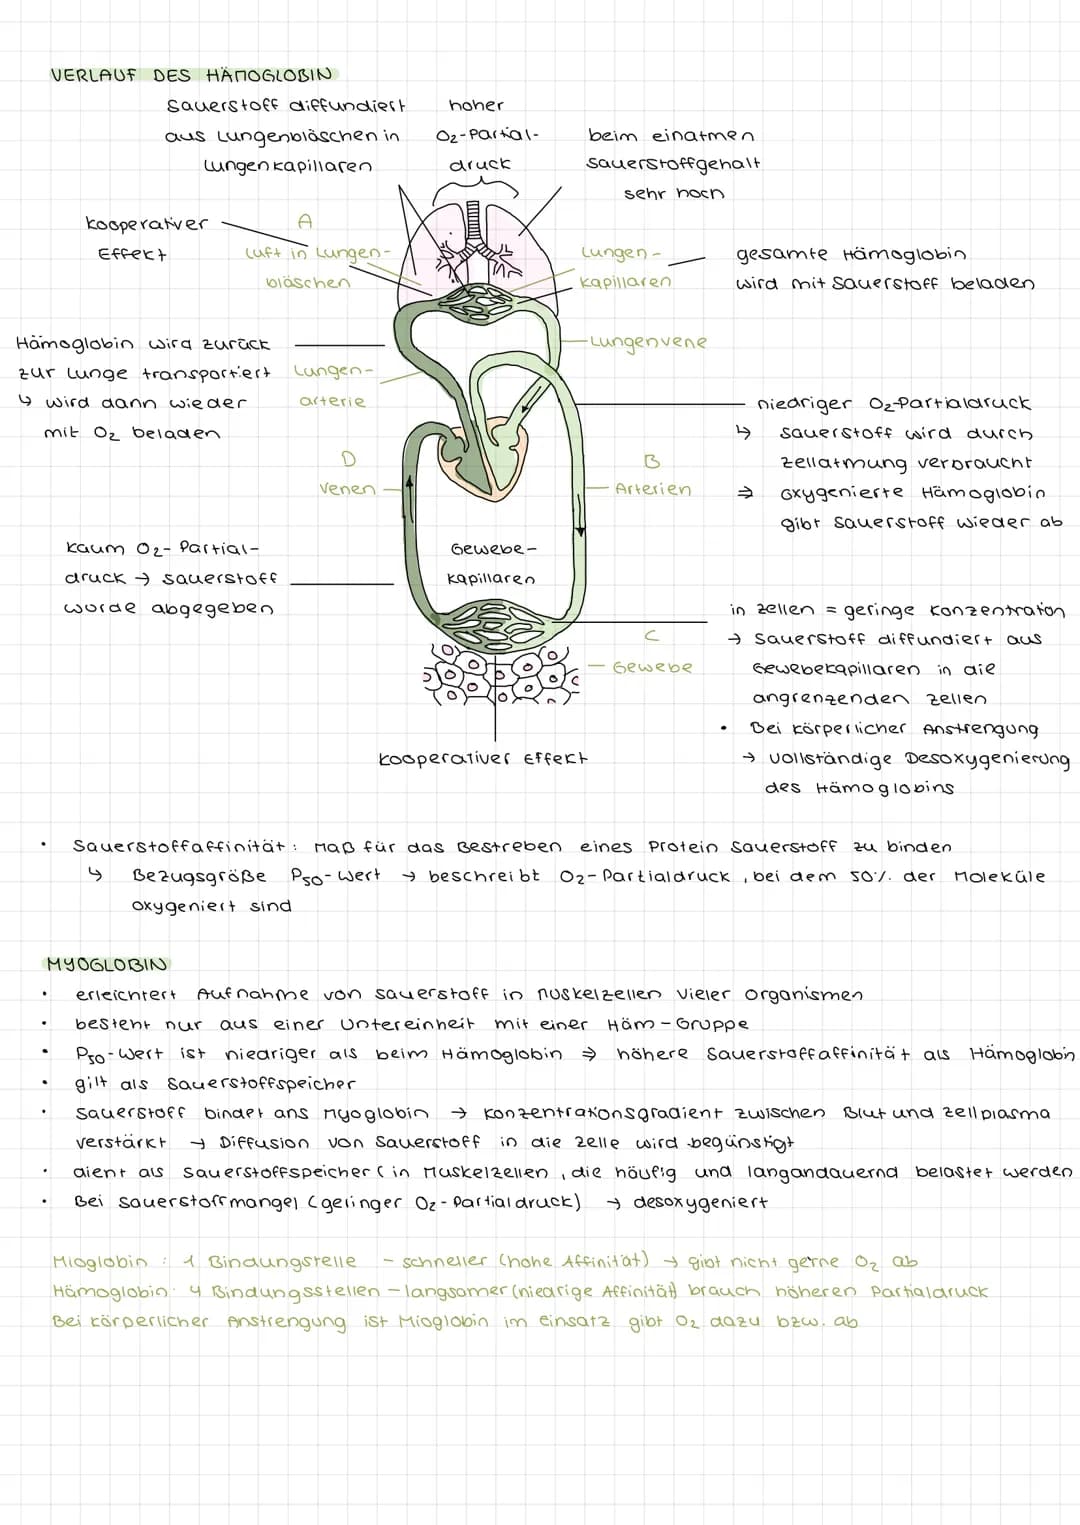 VERLAUF DES HÄMOGLOBIN
Sauerstoff diffundiert
aus Lungenbläschen in
Lungenkapillaren
hoher
O₂-Partial-
druck
beim einatmen
Sauerstoffgehalt
sehr hoch
kooperativer
Effekt
A
Luft in Lungen-
bläschen
Lungen-
kapillaren
gesamte Hämoglobin
wird mit Sauerstoff beladen
Hämoglobin wird zurück
zur Lunge transportiert
↳ wird dann wieder
mit O₂ beladen
Lungen-
arterie
Lungenvene
niedriger O₂-Partialdruck
↳ Sauerstoff wird durch
Zellatmung verbraucht
⇒ Oxygenierte Hämoglobin
gibt Sauerstoff wieder ab
D
Venen
B
Arterien
kaum O₂-Partial-
druck → Sauerstoff
wurde abgegeben
Gewebe-
kapillaren
C
Gewebe
in Zellen = geringe Konzentraton
→ Sauerstoff diffundiert aus
Gewebekapillaren in die
angrenzenden Zellen
• Bei körperlicher Anstrengung
→ vollständige Desoxygenierung
des Hämoglobins
kooperativer Effekt
• Sauerstoffaffinität: Maß für das Bestreben eines Protein Sauerstoff zu binden
↳ Bezugsgröße P₅₀-Wert → beschreibt O₂-Partialdruck, bei dem 50% der Moleküle
oxygeniert sind
MYOGLOBIN
• erleichtert Aufnahme von Sauerstoff in Muskelzellen vieler Organismen
• besteht nur aus einer Untereinheit mit einer Häm-Gruppe
• P₅₀-Wert ist niedriger als beim Hämoglobin ⇒ höhere Sauerstoffaffinität als Hämoglobin
• gilt als Sauerstoffspeicher
• Sauerstoff bindet ans Myoglobin → Konzentrationsgradient zwischen Blut und Zellplasma
verstärkt → Diffusion von Sauerstoff in die Zelle wird begünstigt
• dient als Sauerstoffspeicher (in Muskelzellen, die häufig und langandauernd belastet werden
• Bei Sauerstoffmangel (geringer O₂-Partialdruck) → desoxygeniert
Mioglobin : 1 Bindungstelle - schneller (hohe Affinität) → gibt nicht gerne O₂ ab
Hämoglobin: 4 Bindungsstellen - langsamer (niedrige Affinität) brauch höheren Partialdruck
Bei körperlicher Anstrengung ist Mioglobin im Einsatz gibt O₂ dazu bzw. ab